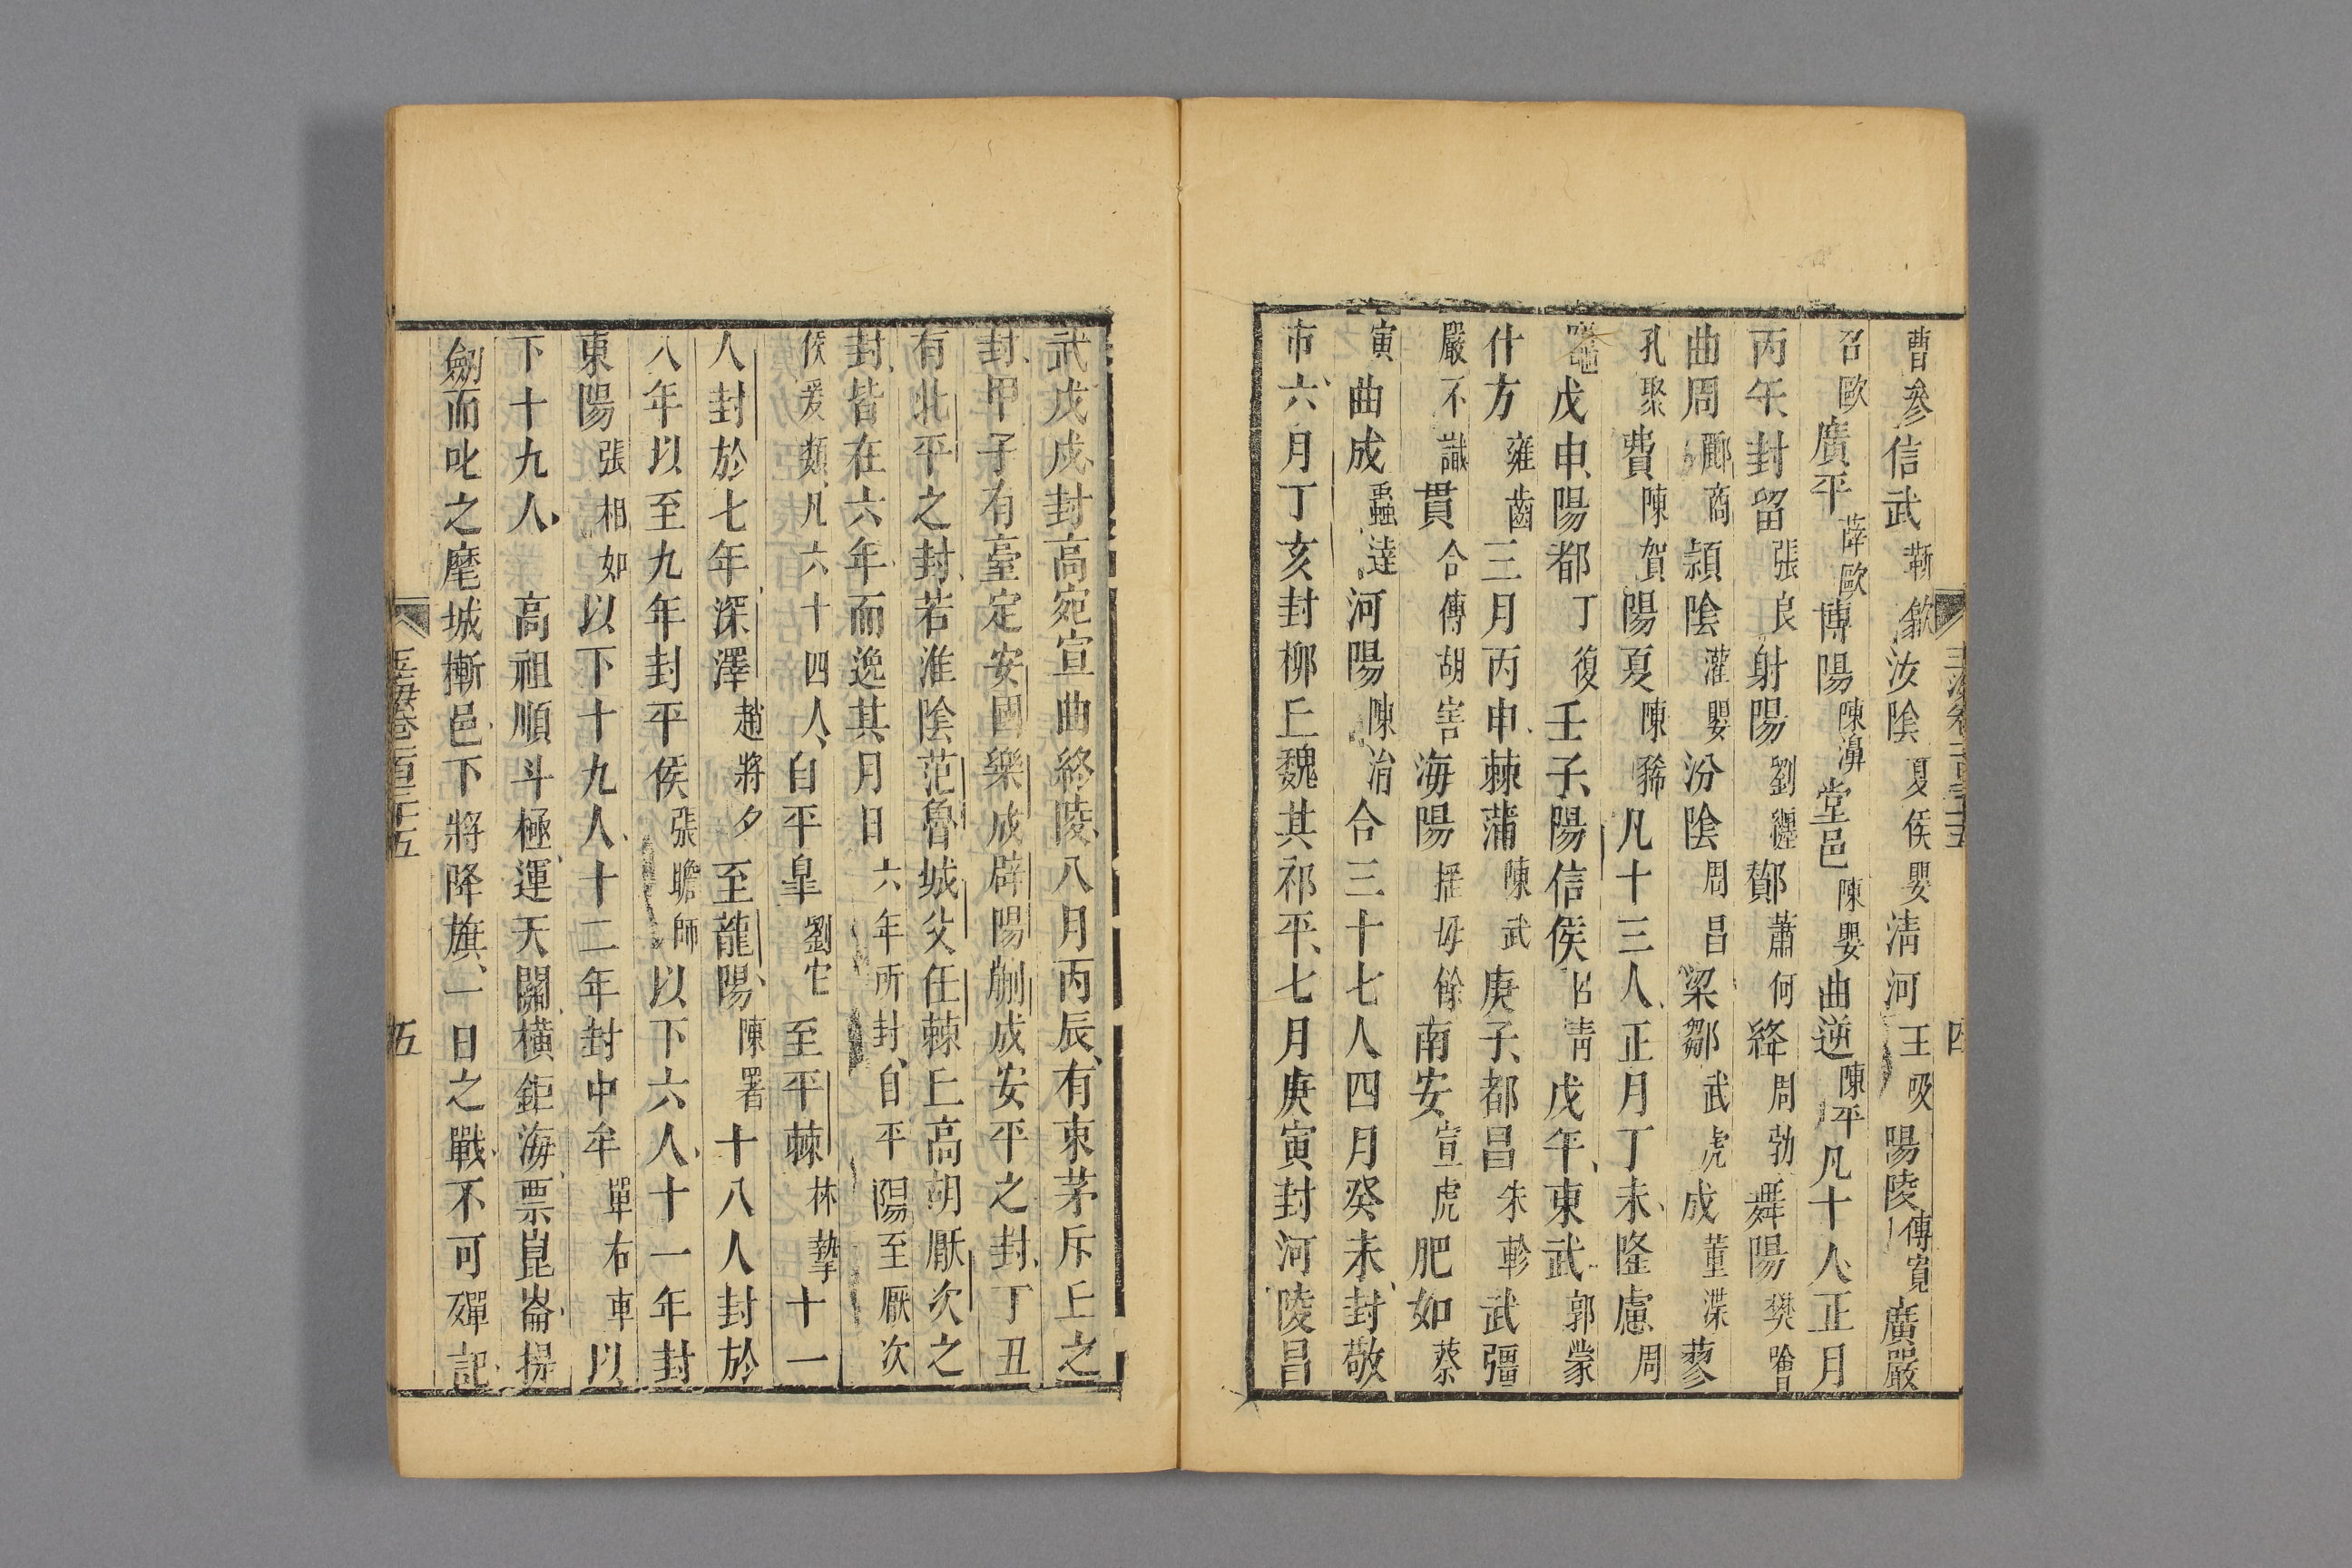 曹參信武靳歙汝陰夏侯嬰清河王吸陽陵傅寬廣嚴
召歐廣平薛歐博陽陳濞堂邑陳嬰曲逆陳平凡十人正月
丙午封留張良射陽劉纏酇蕭何絳周勃舞陽樊噲
曲周酈商潁陰灌嬰汾陰周昌梁鄒武虎成董渫蓼
孔聚費陳賀陽夏陳豨凡十三人正月丁未隆慮周
竈戊申陽都丁復壬子陽信侯呂淸戊午東武郭蒙
什方雍齒三月丙申棘蒲陳武庚子都昌朱軫武彊
嚴不識貫合傅胡害海陽搖毋餘南安宣虎肥如蔡
寅曲成蟲達河陽陳涓合三十七人四月癸未封敬
市六月丁亥封柳丘魏其祁平七月庚寅封河陵昌
武戊戌封高宛宣曲終陵八月丙辰有東茅斥丘之
封甲子有臺定安國樂成辟陽蒯成安平之封丁丑
有北平之封若淮陰范魯城父任棘丘高胡厭次之
封皆在六年而逸其月日六年所封自平陽至厭次
侯爰類凡六十四人自平皐劉它至平棘林摯十一
人封於七年深澤趙將夕至龍陽陳署十八人封於
八年以至九年封平侯張瞻師以下六人十一年封
東陽張相如以下十九人十二年封中牟單右車以
下十九人 高祖順斗極運天關橫鉅海票崑崙提
劒而叱之麾城摲邑下將降旗一日之戰不可殫記
玉海卷一百三十五
五